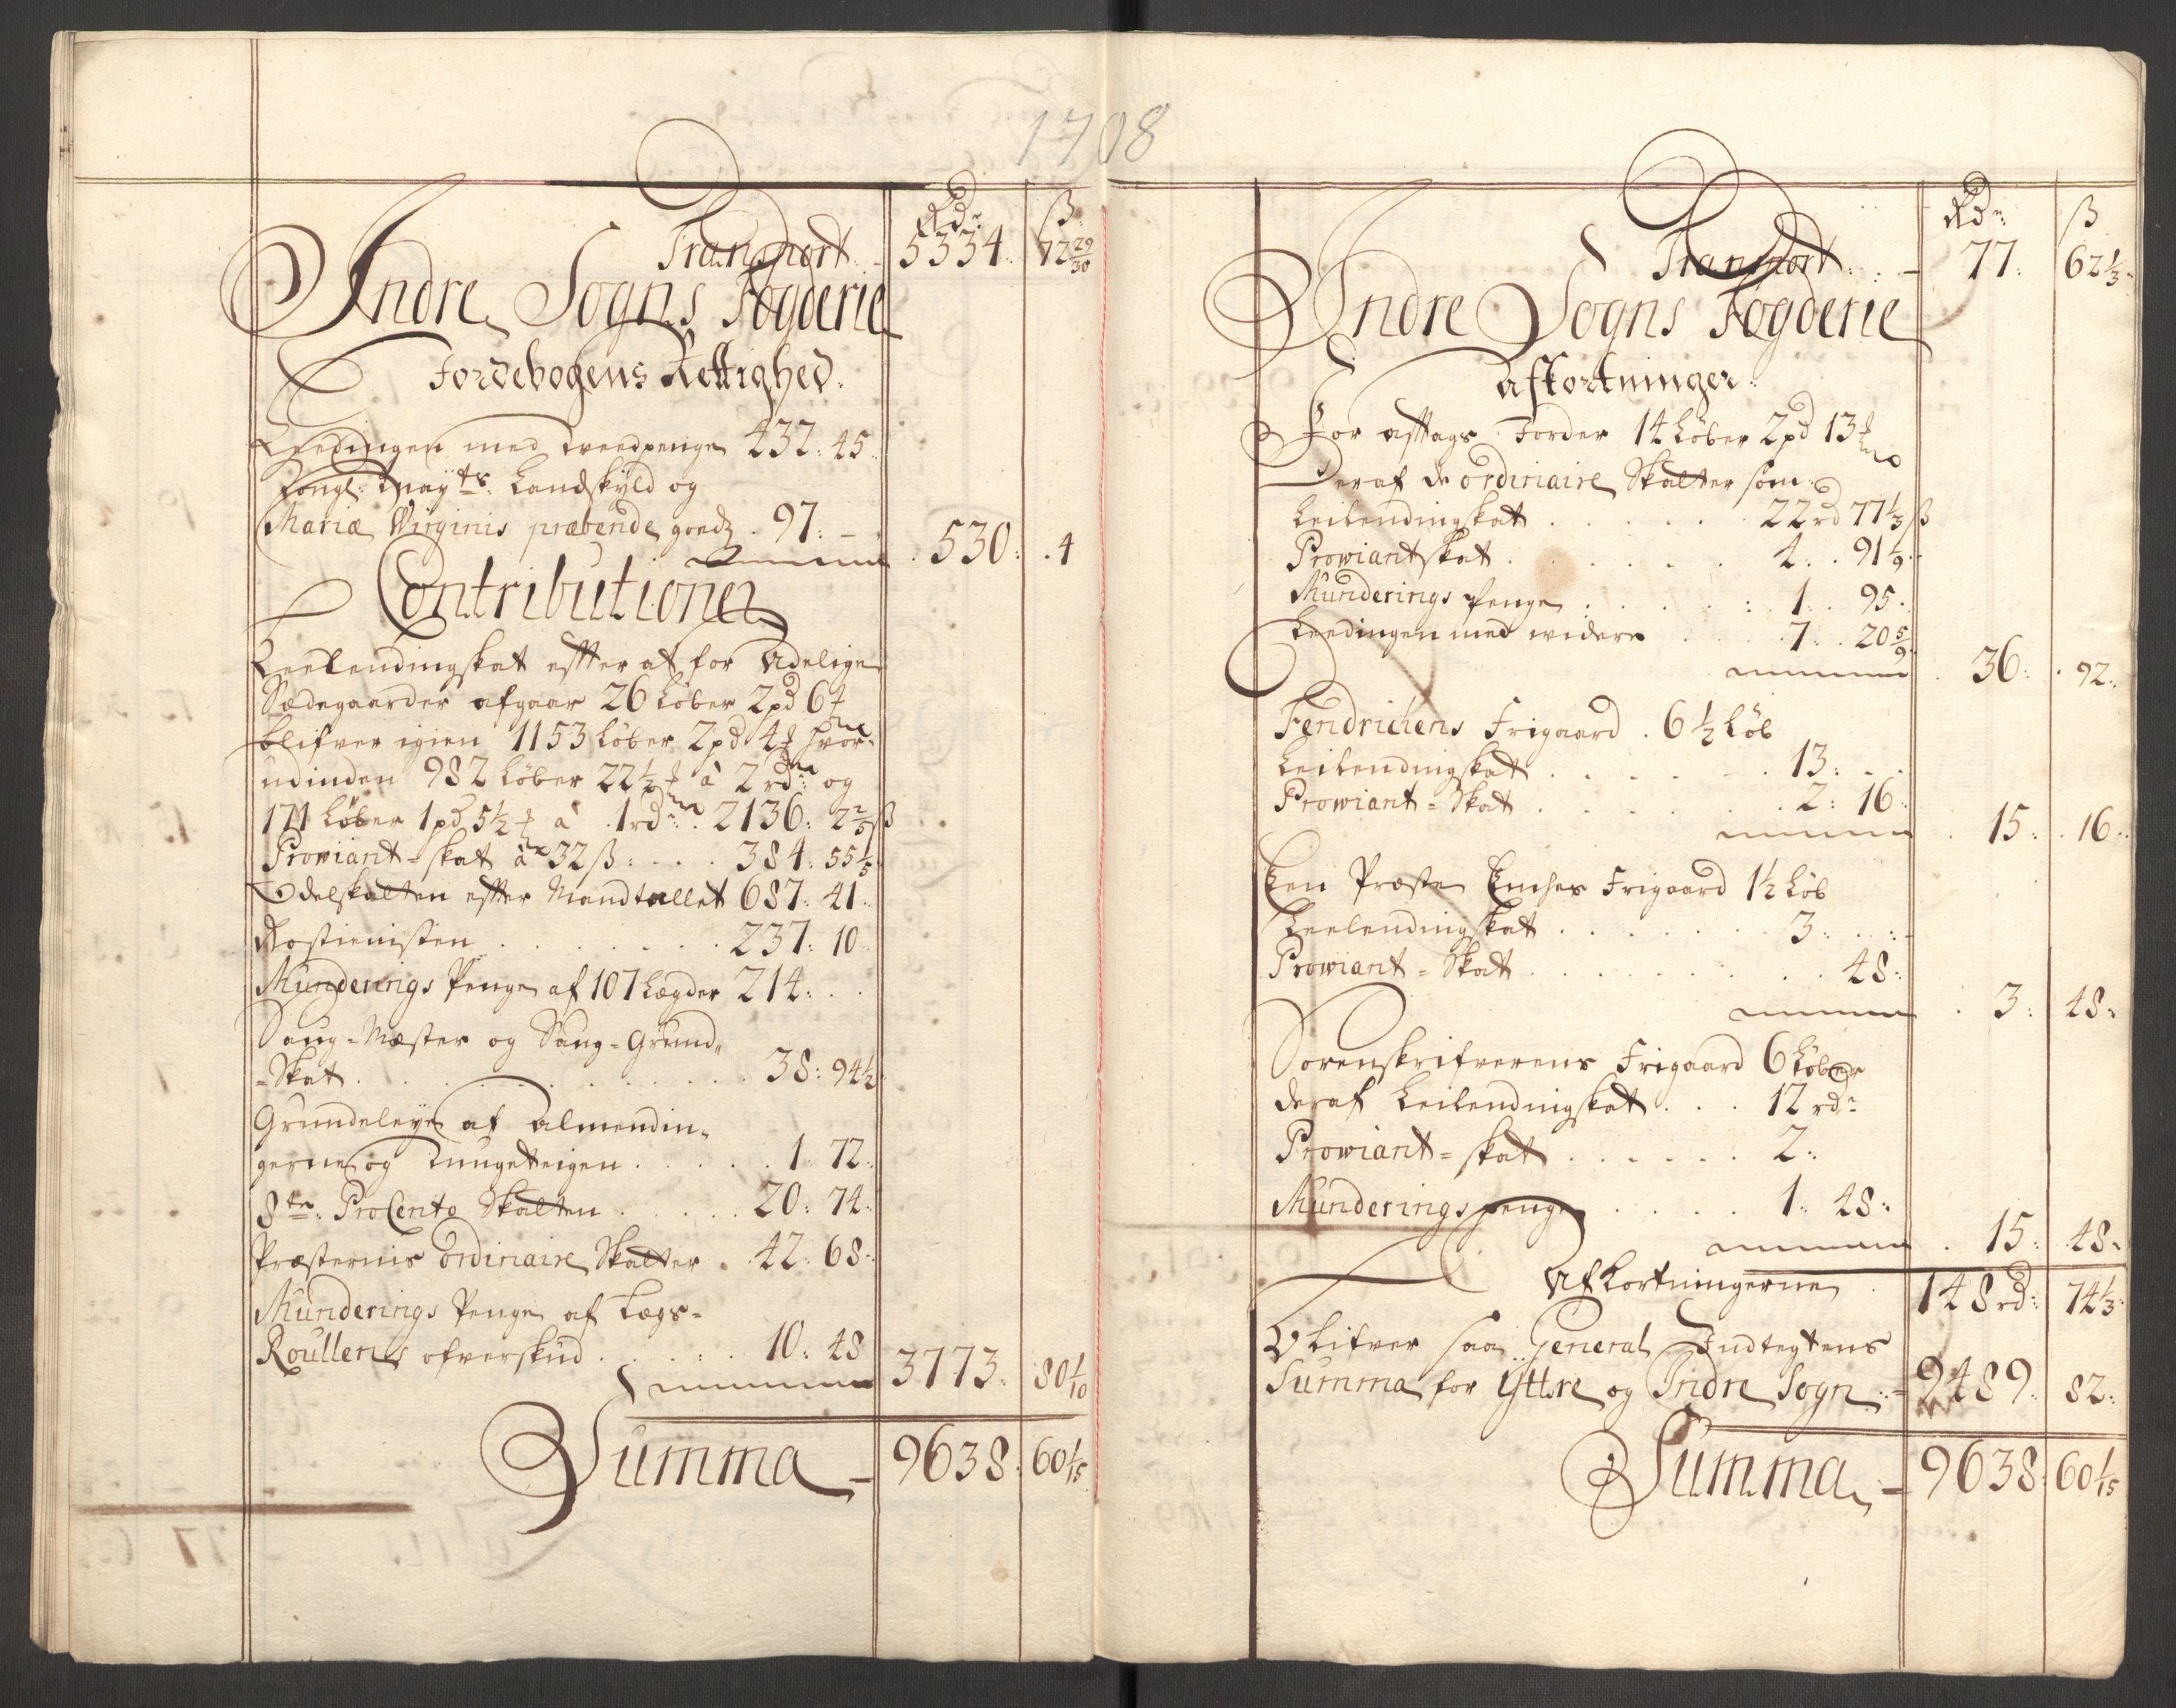 1708
Rdr ß
Transport 5334: 72 29/30
Indre Sogns Fogderie
Jordebogens Rettighed
Leedingen med tveedpenge 432: 45
Kongl: Mayts: Landskyld og
Mariæ Virginis præbende goedz . 97: -
530: 4
Contributioner
Leelendingskat effter at for Adelige
Sædegaarder afgaar 26 Løber 2 pd 6
blifver igien 1153 Løber 2 pd 4 hvor-
udinden 982 Løber 22½ à 2 rdr og
171 Løber 1 pd 5½ à 1 rdr: 2136: 2 2/5 ß
Proviant-skat à 32 ß: 384. 55 1/5
Odelskatten effter Mandtallet 687: 41
Rostienisten 237: 10
Munderings Penge af 107 Lægder 214:
Saug-Mæster og Saug-Grund-
-Skat 38: 94½
Grundeleye af Almendin-
gerne og 1: 72:
8te ProCento Skatten 20: 74:
Præsternis ordinaire Skatter 42: 68:
Munderings Penge af Legs-
Roullens ofverskud 10: 48 3773: 80 1/10
Summa - 9638: 60 1/15
Rdr ß
Transport 77: 62 1/3
Indre Sogns Fogderie
Afkortninger:
For afftags Jorder 14 Løber 2 pd 13
Deraf de ordinaire Skatter som
Leilendingskat 22 rd 77 1/3 ß
Proviantskat 4: 91 1/9
Munderings Penge 1: 95
Leedingen med videre 7: 20 5/9
36: 92
Fendrichens Frigaard . 6½ Løb
Leilendingskat 13:
Proviant-Skat 2: 16
15: 16
Een Præste Enches Frigaard 1½ Løb
Leelendingskat 3:
Proviant-Skat 48:
3: 48
Sorenskrifverens Frigaard 6 Løber
deraf Leilendingskat 12 rdr
Proviant-skat 2:
Munderingspenge 1: 48:
15: 48
Afkortningerne 148 rd: 74 1/3
Blifver saa General Indtegtens
Summa for Yttre og Indre Sogn 9489: 82:
Summa - 9638: 60 1/15